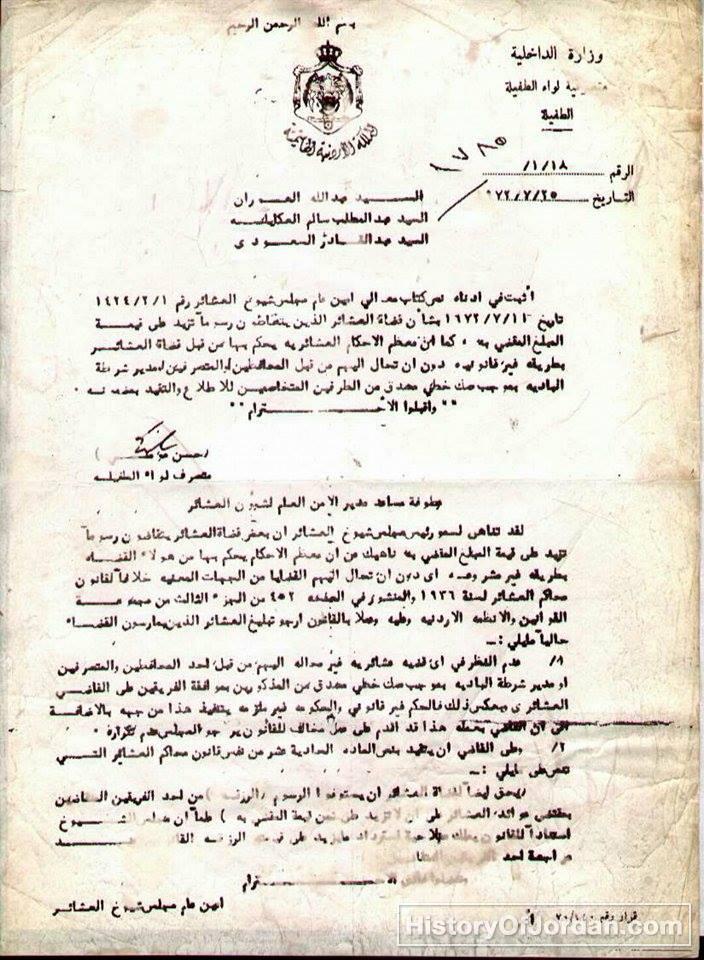 بسم الله الرحمن الرحيم
وزارة الداخلية
متصرفية لواء الطفيلة
الطفيلة
المملكة الأردنية الهاشمية
١٧٨٥
الرقم ١/١٨/
التاريخ ١٩٧٢/٧/٢٥
السيد عبدالله العوران
السيد عبدالمطلب سالم العكايله
السيد عبدالقادر السعودي
أثبت في ادناه نص كتاب معالي امين عام مجلس شيوخ العشائر رقم ١٤٢٤/٢/١
تاريخ ١٦٧٢/٧/١١ بشأن قضاة العشائر الذين يتقاضون رسوماً تزيد على قيمة
المبلغ المقضي به ، كما ان معظم الاحكام العشائريه يحكم بها من قبل قضاة العشائر
بطريقه غير قانونيه دون ان تحال اليهم من قبل المحافظين او المتصرفين او مدير شرطة
الباديه بموجب صك خطي مصدق من الطرفين المتخاصمين للاطلاع والتقيد بمضمونه .
" " واقبلوا الاحترام " "
( حسن )
متصرف لواء الطفيله
عطوفة مساعد مدير الامن العام لشؤون العشائر
لقد تناهى لسمو رئيس مجلس شيوخ العشائر ان بعض قضاة العشائر يتقاضون رسوماً
تزيد على قيمة المبلغ المقضي به ناهيك عن ان معظم الاحكام يحكم بها من هولاء القضاه
بطريقه غير مشروعه اى دون ان تحال اليهم القضايا من الجهات المعنيه خلافاً لقانون
محاكم العشائر لسنة ١٩٣٦ والمنشور في الصفحه ٤٥٢ من الجزء الثالث من مجموعة
القوانين والانظمه الاردنيه وعليه وعملا بالقانون ارجو تبليغ العشائر الذين يمارسون القضاء
حالياً مايلي :ـ
١/ عدم النظر في اى قضيه عشائريه غير محاله اليهم من قبل احد المحافظين والمتصرفين
او مدير شرطة الباديه بموجب صك خطي مصدق من المذكورين بموافقة الفريقين على القاضي
العشائرى وبعكس ذلك فالحكم غير قانوني والحكومه غير ملزمه بتنفيذ هذا من جهه بالاضافة
الى ان القاضي بعمله هذا قد اقدم على عمل مخالف للقانون يرجو المجلس عدم تكراره .
٢/ وعلى القاضي ان يتقيد بنص المادة الحادية عشر من نفس قانون محاكم العشائر التي
تنص على مايلي :ـ
( يحق ايضاً لقضاة العشائر ان يستوفوا الرسوم ( الرزقه ) من احد الفريقين المتقاضين
بمقتضى عوائد العشائر على ان لا تزيد على ثمن قيمة المقضي به ) علماً ان مجلس الشيوخ
استناداً للقانون يملك صلاحية استرداد مايزيد على قيمة الرزقه
مراجعة احد
واقبلوا الاحترام
امين عام مجلس شيوخ العشائر
قرار رقم
HistoryOfJordan.com